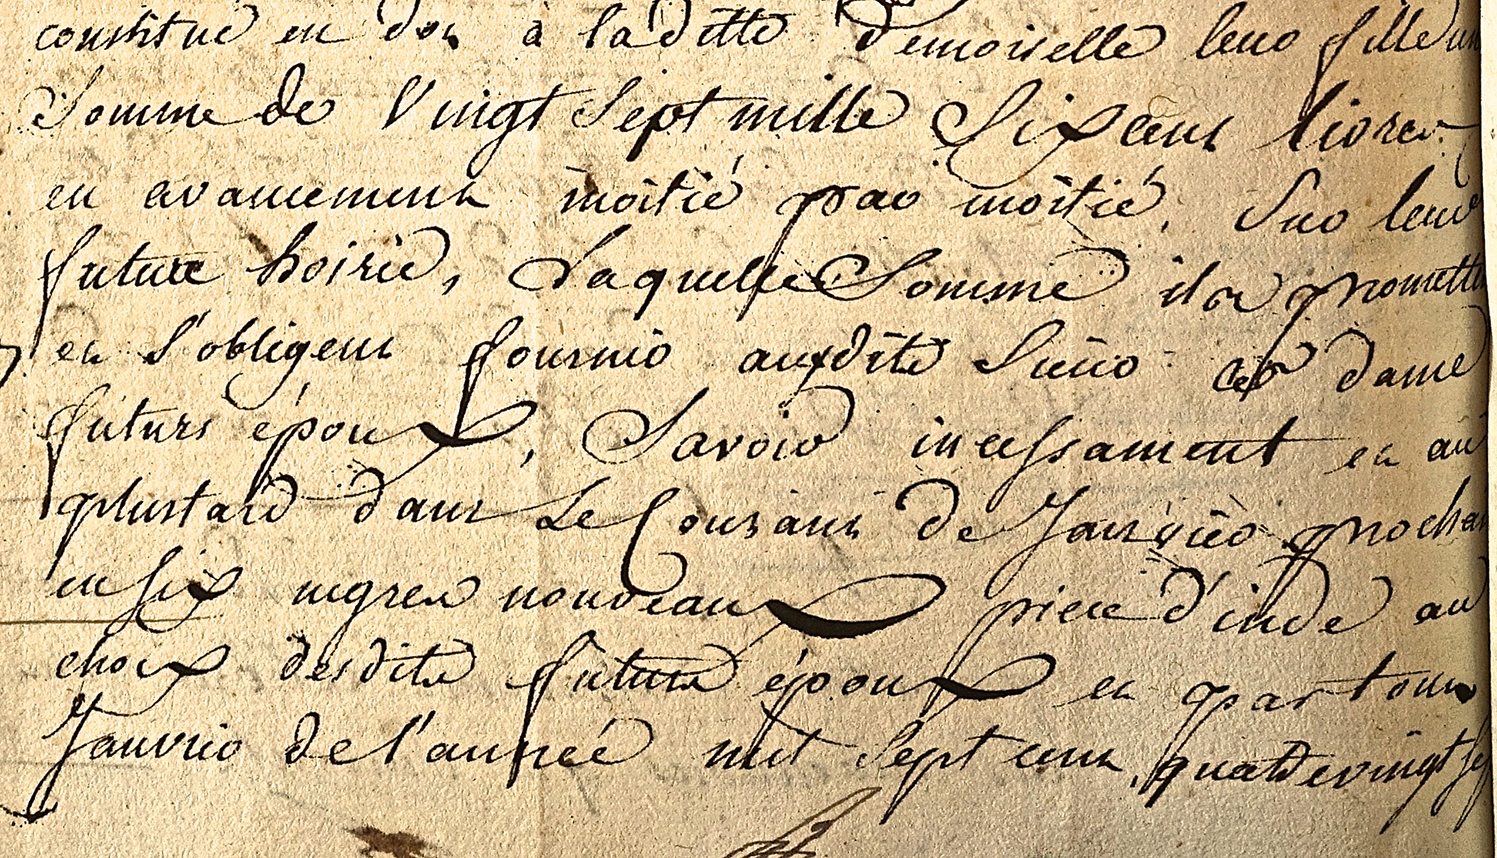 constitué en dot à laditte demoiselle leur fille une
Somme de Vingt Sept mille Six cent livres
en avancement moitié par moitié, Sur leur
future hoirie, Laquelle Somme ils promettent
et S'obligent fournir auxdits Sieur et dame
futurs époux, Savoir incessament et au
plustard dans Le Courant de Janvier prochain
en six negres nouveaux piece d'inde au
choix desdits futurs époux et par tout
Janvier de l'année mil Sept cent quatrevingt sept